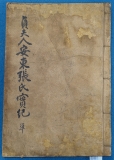 貞夫人安東張氏實紀 單